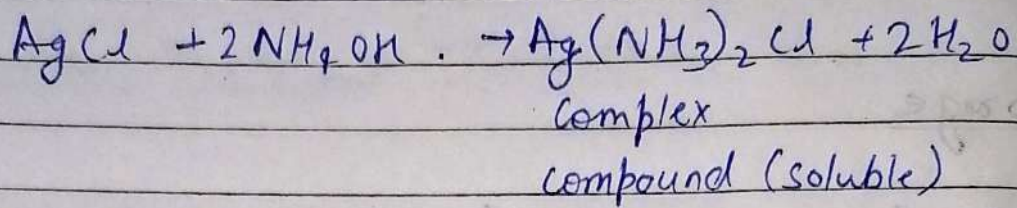 AgCl + 2NH4OH. → Ag(NH3)2Cl + 2H2O
Complex
compound (soluble)